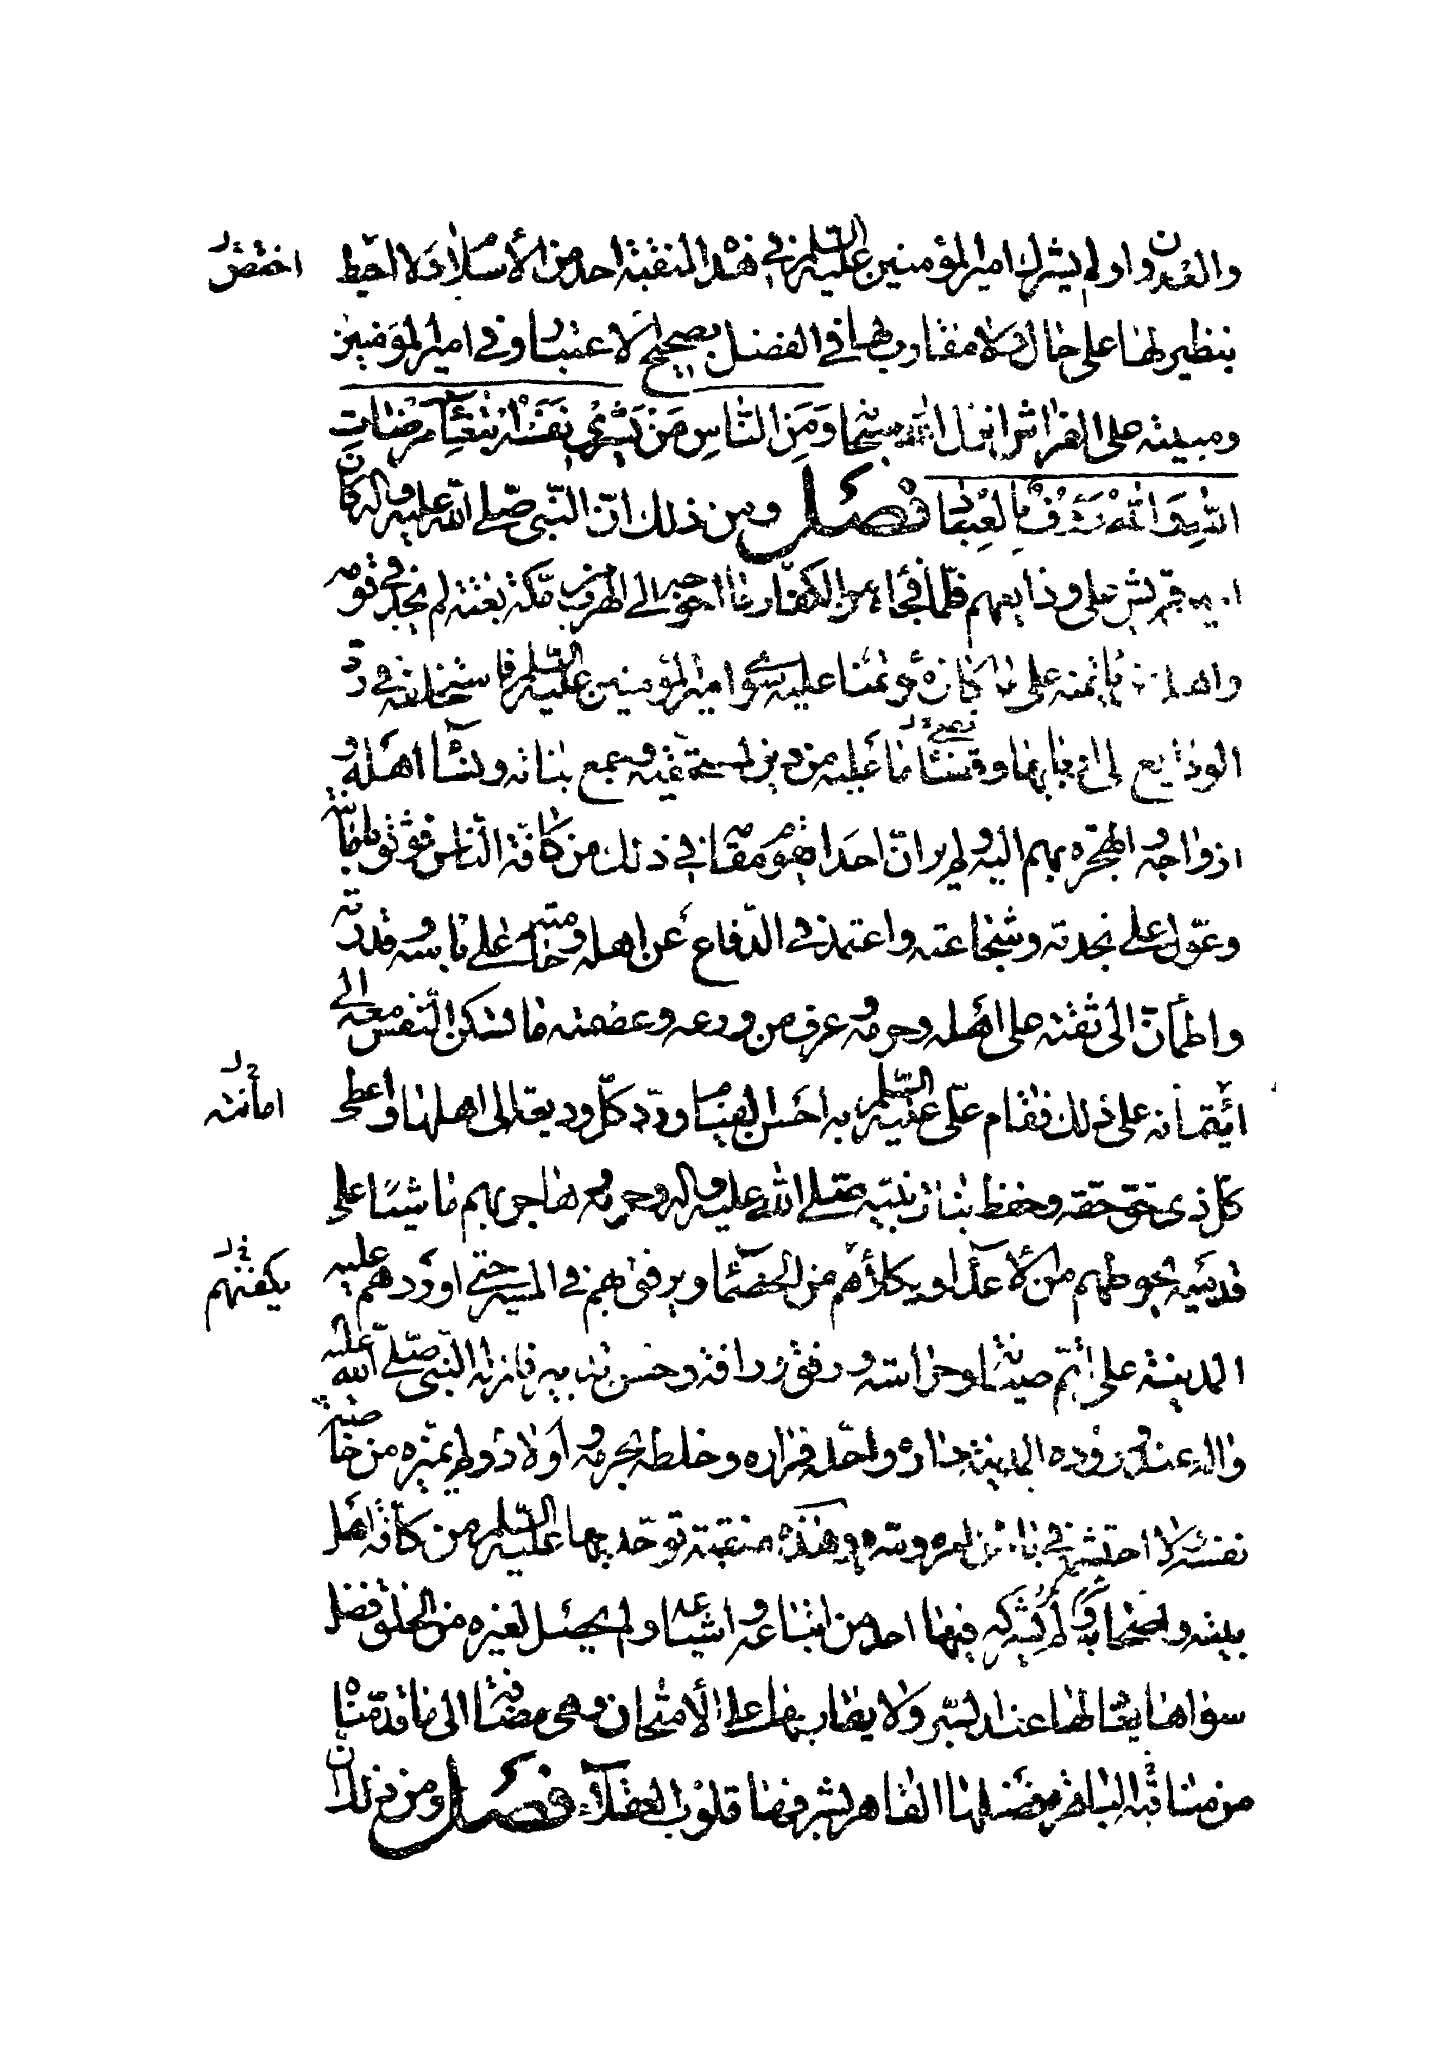 والعدوان ولم يشرك امير المؤمنين عليه السلم في هذه المنقبة احد من الأسلام ولا احيط
اختص ل
بنظير لها على حال ولا مقارب لها في الفضل بصحيح الاعتبار وفي امير المؤمنين
ومبيته على الفراش انزل الله سبحانه وَمِنَ النّاسِ مَنْ يَشْرِي نَفْسَهُ ابْتِغآءَ مَرْضاتِ
اللهِ وَاللهُ رَؤُفٌ بِالعِبادِ فصل ومن ذلك انّ النّبي صلّى الله عليه واله كان
امين قريش على ودايعهم فلمّا فجاه من الكفّار ما احوجه الى الهرب من مكّة بغتة لم يجد في قومه
واهله من يأتمنه على ما كان مؤتمنا عليه سوى امير المؤمنين عليه السّلم فاستخلفه في ردّ
الودايع الى اربابها وقضاء ما عليه من دين لمستحقّيه وجمع بناته ونساء اهله و
ازواجه والهجرة بهم اليه ولم ير انّ احدا يقوم مقامه في ذلك من كافّة النّاس فوثق بامانته
وعوّل على نجدته وشجاعته واعتمد في الدّفاع عن اهله وحامّته على باسه وقدرته
واطمأنّ الى ثقته على اهله وحرمه وعرف من ورعه وعصمته ما تسكن النّفس معه الى
ايتمانه على ذلك فقام علي عليه السّلم به احسن القيام وردّ كلّ وديعة الى اهلها واعطى
امانته ل
كلّ ذي حق حقّه وحفظ بنات نبيّه صلّى الله عليه واله وحرمه وهاجر بهم ماشيًا على
قدميه يحوطهم من الأعداء ويكلأهم من الخصماء ويرفق بهم في المسير حتى اوردهم عليه
يكفنهم ل
المدينة على اتمّ صيانة وحراسة ورفق ورافة وحسن تدبير فانزله النّبي صلّى الله عليه
واله عند وروده المدينة داره واحلّه قراره وخلطه بحرمه واولاده ولم يميّزه من خاصّة
نفسه ولا احتشمه في باطن امره وسره وهذه منقبة توحّد بها عليه السّلم من كافّة اهل
بيته واصحابه ولم يشركه فيها احد من اتباعه واشياعه ولم يحصل لغيره من الخلق فضل
سواها يعادلها عند السبر ولا يقاربها على الأمتحان وهي مضافة الى ما قدّمناه
من مناقبه الباهر فضلها القاهر شرفها قلوب العقلآء فصل ومن ذلك ان